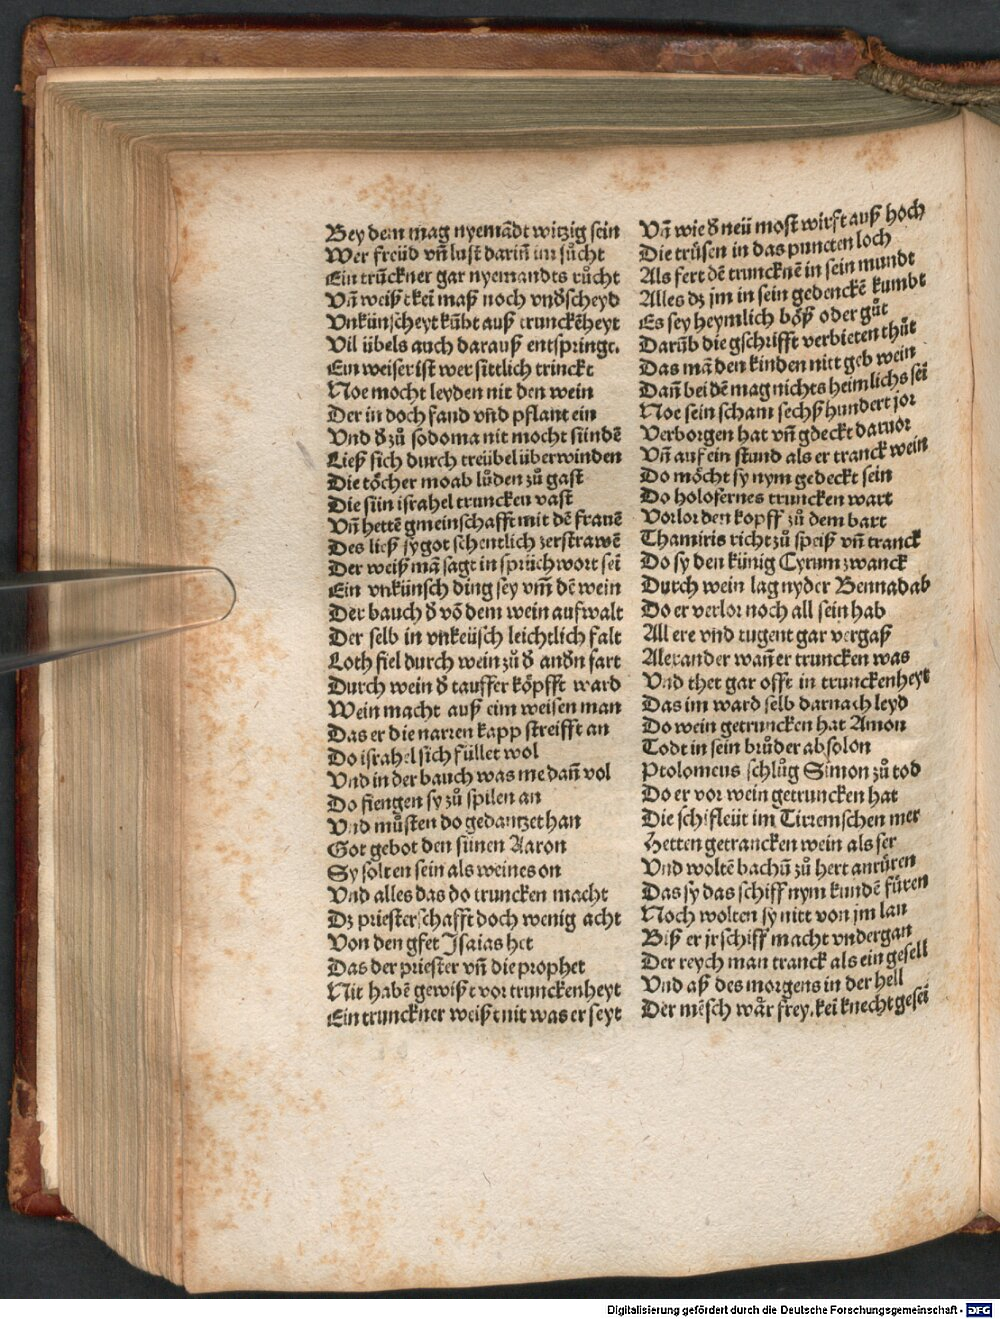 Bey dem mag nyemādt witzig sein
Wer freüd vn̄ lust dariñ im sůcht
Ein trūckner gar nyemandts růcht
Vn̄ weißt kei maß noch vndscheyd
Vnkünscheyt kūbt auß trunckēheyt
Vil übels auch darauß entspringt.
Ein weiser ist wer sittlich trinckt
Noe mocht leyden nit den wein
Der in doch fand vnd pflant ein
Vnd d zů sodoma nit mocht sündē
Ließ sich durch treübel überwinden
Die töcher moab lůden zů gast
Die sün israhel truncken vast
Vn̄ hettē gmeinschafft mit dē frauē
Des ließ sy got schentlich zerstrawē
Der weiß mā sagt in sprüchwort sei
Ein vnkünsch ding sey vm̄ dē wein
Der bauch d vō dem wein aufwalt
Der selb in vnkeüsch leichtlich falt
Loth fiel durch wein zů d andn fart
Durch wein d tauffer köpfft ward
Wein macht auß eim weisen man
Das er die narren kapp streifft an
Do israhel sich füllet wol
Vnd in der bauch was me dañ vol
Do fiengen sy zů spilen an
Vnd můsten do gedantzet han
Got gebot den sünen Aaron
Sy solten sein als weines on
Vnd alles das do truncken macht
Dz priesterschafft doch wenig acht
Von den gset Isaias het
Das der priester vn̄ die prophet
Nit habē gewißt vor trunckenheyt
Ein trunckner weißt nit was er seyt
Vn̄ wie d neü most wirft auß hoch
Die trüsen in das puncten loch
Als fert dē truncknē in sein mundt
Alles dz jm in sein gedenckē kumbt
Es sey heymlich böß oder gůt
Darūb die gschrifft verbieten thůt
Das mā den kinden nitt geb wein
Dañ bei dē mag nichts heimlichs sei
Noe sein scham sechß hundert jor
Verborgen hat vn̄ gdeckt daruor
Vn̄ auf ein stund als er tranck wein
Do möcht sy nym gedeckt sein
Do holofernes truncken wart
Vorlor den kopff zů dem bart
Thamiris richt zů speiß vn̄ tranck
Do sy den künig Cyrum zwanck
Durch wein lag nyder Bennadab
Do er verlor noch all sein hab
All ere vnd tugent gar vergaß
Alexander wañ er truncken was
Vnd thet gar offt in trunckenheyt
Das im ward selb darnach leyd
Do wein getruncken hat Amon
Todt in sein brůder absolon
Ptolomeus schlůg Simon zů tod
Do er vor wein getruncken hat
Die schifleüt im Tirremschen mer
Hetten getrancken wein als ser
Vnd woltē bachū zů hert anrüren
Das sy das schiff nym kundē füren
Noch wolten sy nitt von jm lan
Biß er jr schiff macht vndergan
Der reych man tranck als ein gesell
Vnd aß des morgens in der hell
Der mēsch wår frey, kei knecht gesei
Digitalisierung gefördert durch die Deutsche Forschungsgemeinschaft - DFG